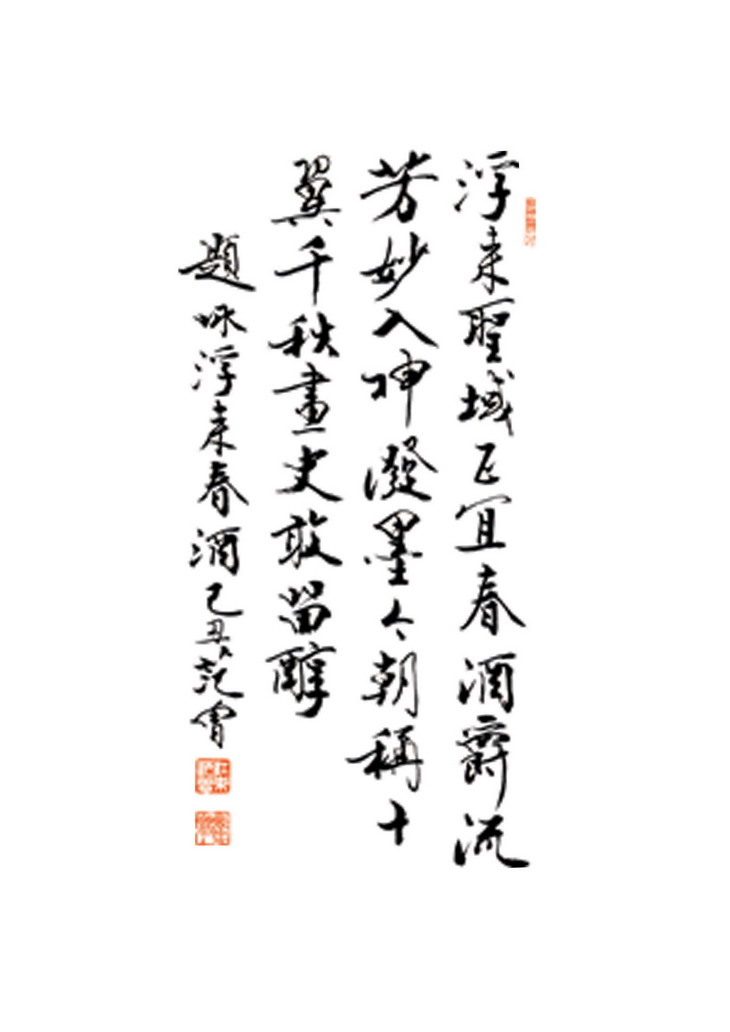 浮来聖域正宜春酒爵流
芳妙入神潑墨今朝稱十
翼千秋畫史敢留醇
題咏浮来春酒己丑范曾